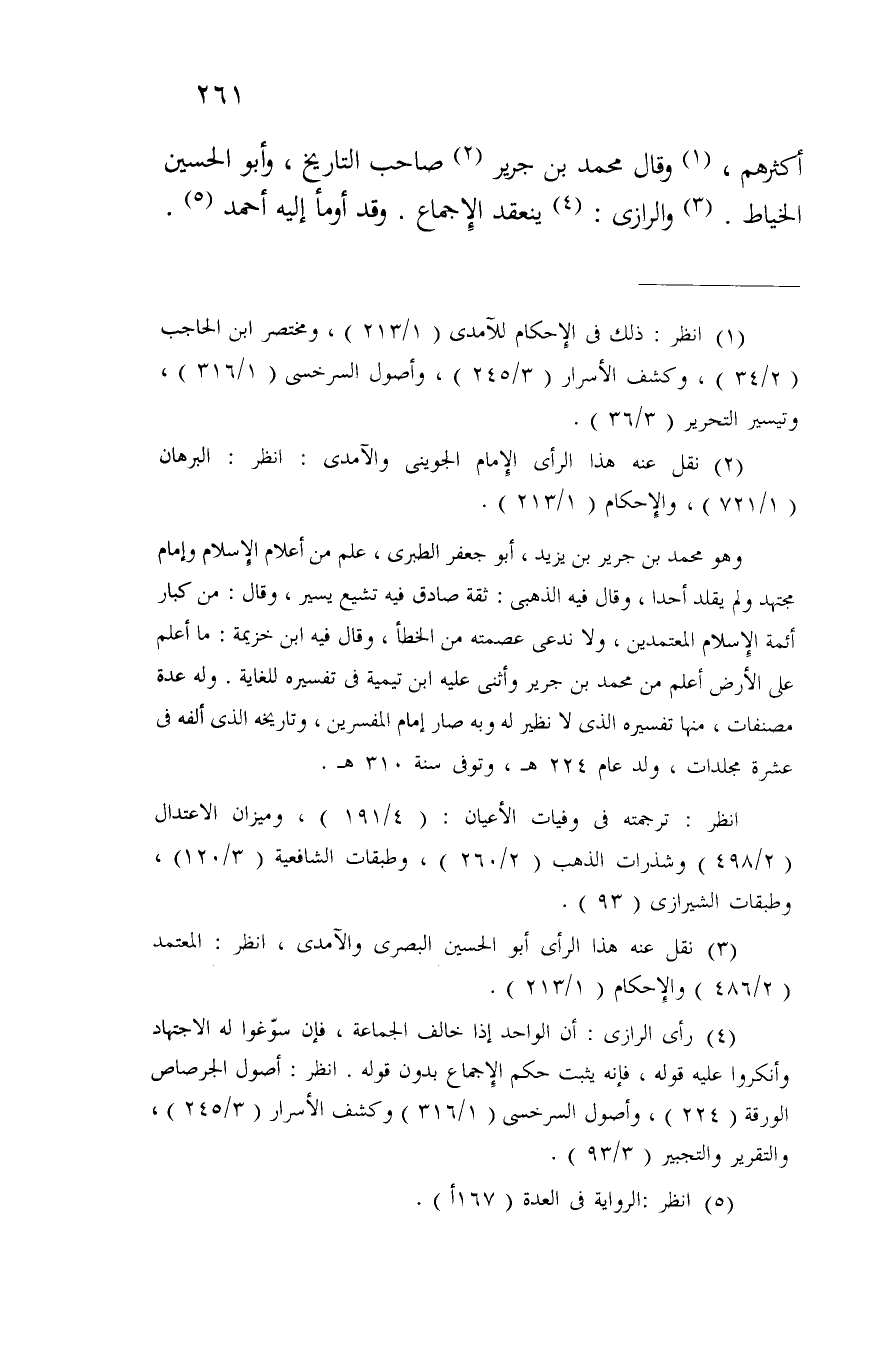 ٢٦١
أكثرهم ، (١) وقال محمد بن جرير (٢) صاحب التاريخ ، وأبو الحسين
الخياط . (٣) والرازى : (٤) ينعقد الإجماع . وقد أومأ إليه أحمد (٥) .
(١) انظر : ذلك فى الإحكام للآمدى ( ٢١٣/١ ) ، ومختصر ابن الحاجب
( ٣٤/٢ ) ، وكشف الأسرار ( ٢٤٥/٣ ) ، وأصول السرخسى ( ٣١٦/١ ) ،
وتيسير التحرير ( ٣٦/٣ ) .
(٢) نقل عنه هذا الرأى الإمام الجوينى والآمدى : انظر : البرهان
( ٧٢١/١ ) ، والإحكام ( ٢١٣/١ ) .
وهو محمد بن جرير بن يزيد ، أبو جعفر الطبرى ، علم من أعلام الإسلام وإمام
مجتهد ولم يقلد أحدا ، وقال فيه الذهبى : ثقة صادق فيه تشيع يسير ، وقال : من كبار
أئمة الإسلام المعتمدين ، ولا ندعى عصمته من الخطأ ، وقال فيه ابن خزيمة : ما أعلم
على الأرض أعلم من محمد بن جرير وأثنى عليه ابن تيمية فى تفسيره للغاية . وله عدة
مصنفات ، منها تفسيره الذى لا نظير له وبه صار إمام المفسرين ، وتاريخه الذى ألفه فى
عشرة مجلدات ، ولد عام ٢٢٤ هـ ، وتوفى سنة ٣١٠ هـ .
انظر : ترجمته فى وفيات الأعيان : ( ١٩١/٤ ) ، وميزان الاعتدال
( ٤٩٨/٢ ) وشذرات الذهب ( ٢٦٠/٢ ) ، وطبقات الشافعية ( ١٢٠/٣) ،
وطبقات الشيرازى ( ٩٣ ) .
(٣) نقل عنه هذا الرأى أبو الحسين البصرى والآمدى ، انظر : المعتمد
( ٤٨٦/٢ ) والإحكام ( ٢١٣/١ ) .
(٤) رأى الرازى : أن الواحد إذا خالف الجماعة ، فإن سوّغوا له الاجتهاد
وأنكروا عليه قوله ، فإنه يثبت حكم الإجماع بدون قوله . انظر : أصول الجرصاص
الورقة ( ٢٢٤ ) ، وأصول السرخسى ( ٣١٦/١ ) وكشف الأسرار ( ٢٤٥/٣ ) ،
والتقرير والتجبير ( ٩٣/٣ ) .
(٥) انظر :الرواية فى العدة ( ١٦٧أ ) .